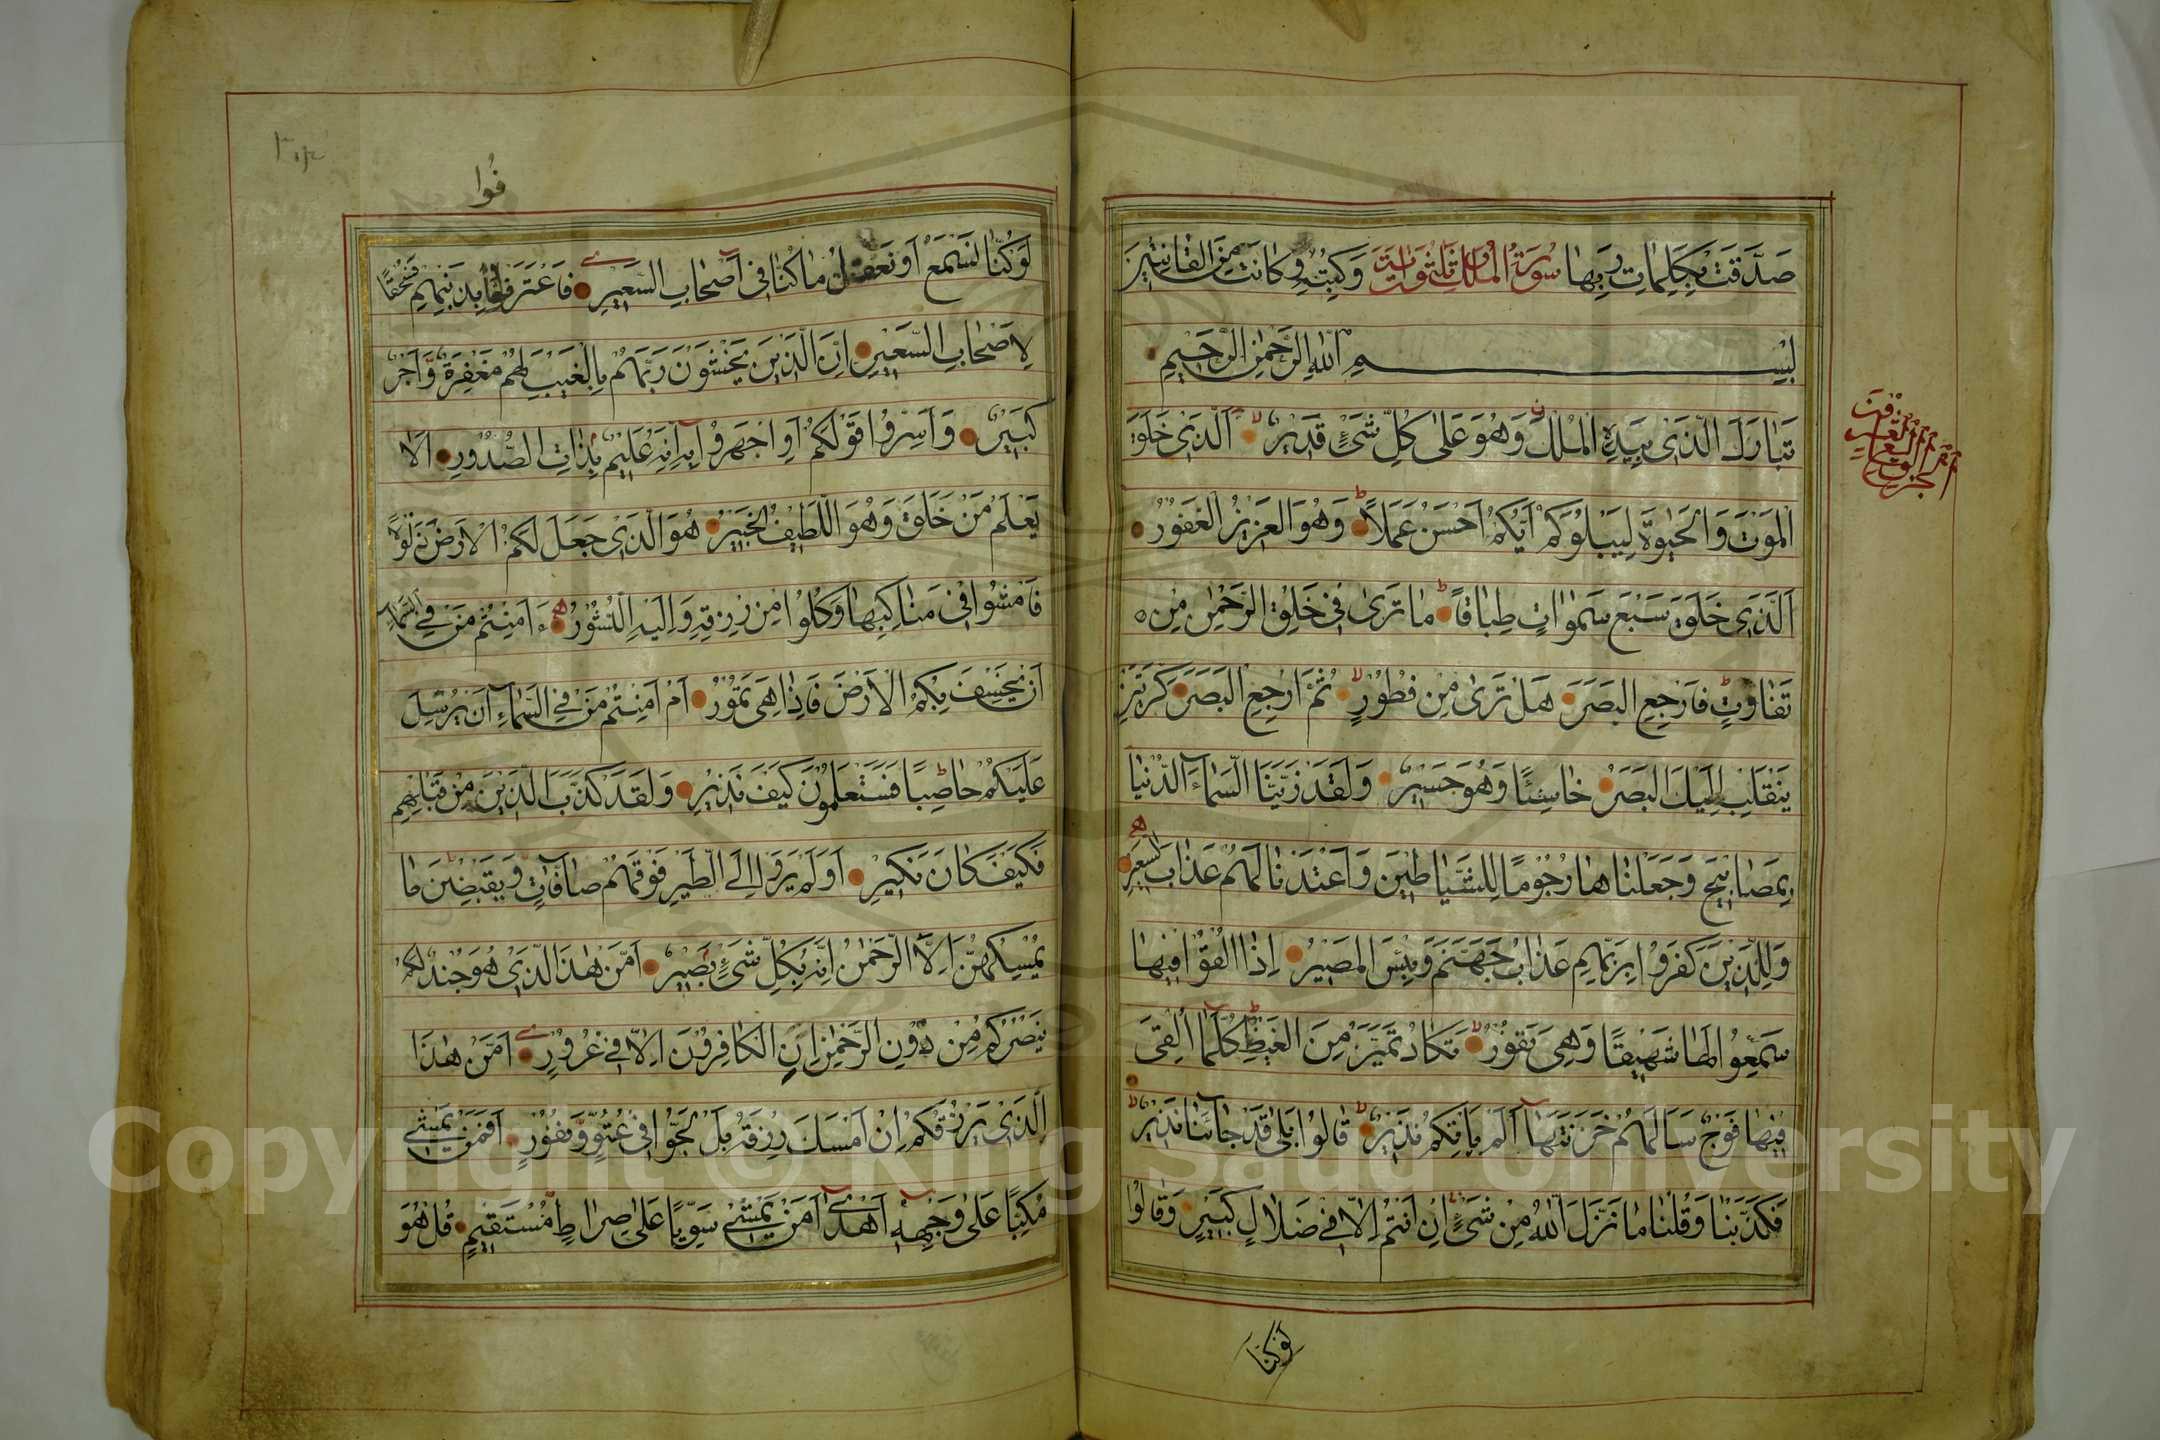 صَدَّقَتْ بِكَلِمَاتِ رَبِّهَا سُورَةُ الْمُلْكِ ثَلٰثُونَ اٰيَة وَكُتُبِهِ وَكَانَتْ مِنَ الْقَانِتِينَ
بِسْمِ اللّٰهِ الرَّحْمٰنِ الرَّحِيمِ
تَبَارَكَ الَّذِى بِيَدِهِ الْمُلْكُ وَهُوَ عَلٰى كُلِّ شَىْءٍ قَدِيرٌ الَّذِى خَلَقَ
الْمَوْتَ وَالْحَيٰوةَ لِيَبْلُوَكُمْ اَيُّكُمْ اَحْسَنُ عَمَلًا وَهُوَ الْعَزِيزُ الْغَفُورُ
الَّذِى خَلَقَ سَبْعَ سَمٰوَاتٍ طِبَاقًا مَا تَرٰى فِى خَلْقِ الرَّحْمٰنِ مِنْ
تَفَاوُتٍ فَارْجِعِ الْبَصَرَ هَلْ تَرٰى مِنْ فُطُورٍ ثُمَّ ارْجِعِ الْبَصَرَ كَرَّتَيْنِ
يَنْقَلِبْ اِلَيْكَ الْبَصَرُ خَاسِئًا وَهُوَ حَسِيرٌ وَلَقَدْ زَيَّنَّا السَّمَاءَ الدُّنْيَا
بِمَصَابِيحَ وَجَعَلْنَاهَا رُجُومًا لِلشَّيَاطِينِ وَاَعْتَدْنَا لَهُمْ عَذَابَ السَّعِيرِ
وَلِلَّذِينَ كَفَرُوا بِرَبِّهِمْ عَذَابُ جَهَنَّمَ وَبِئْسَ الْمَصِيرُ اِذَا اُلْقُوا فِيهَا
سَمِعُوا لَهَا شَهِيقًا وَهِىَ تَفُورُ تَكَادُ تَمَيَّزُ مِنَ الْغَيْظِ كُلَّمَا اُلْقِىَ
فِيهَا فَوْجٌ سَاَلَهُمْ خَزَنَتُهَا اَلَمْ يَاْتِكُمْ نَذِيرٌ قَالُوا بَلٰى قَدْ جَاءَنَا نَذِيرٌ
فَكَذَّبْنَا وَقُلْنَا مَا نَزَّلَ اللّٰهُ مِنْ شَىْءٍ اِنْ اَنْتُمْ اِلَّا فِى ضَلَالٍ كَبِيرٍ وَقَالُوا
لَوْ كُنَّا
لَوْ كُنَّا نَسْمَعُ اَوْ نَعْقِلُ مَا كُنَّا فِى اَصْحَابِ السَّعِيرِ فَاعْتَرَفُوا بِذَنْبِهِمْ فَسُحْقًا
لِاَصْحَابِ السَّعِيرِ اِنَّ الَّذِينَ يَخْشَوْنَ رَبَّهُمْ بِالْغَيْبِ لَهُمْ مَغْفِرَةٌ وَّاَجْرٌ
كَبِيرٌ وَاَسِرُّوا قَوْلَكُمْ اَوِ اجْهَرُوا بِهِ اِنَّهُ عَلِيمٌ بِذَاتِ الصُّدُورِ اَلَا
يَعْلَمُ مَنْ خَلَقَ وَهُوَ اللَّطِيفُ الْخَبِيرُ هُوَ الَّذِى جَعَلَ لَكُمُ الْاَرْضَ ذَلُولًا
فَامْشُوا فِى مَنَاكِبِهَا وَكُلُوا مِنْ رِزْقِهِ وَاِلَيْهِ النُّشُورُ ءَاَمِنْتُمْ مَنْ فِى السَّمَاءِ
اَنْ يَخْسِفَ بِكُمُ الْاَرْضَ فَاِذَا هِىَ تَمُورُ اَمْ اَمِنْتُمْ مَنْ فِى السَّمَاءِ اَنْ يُرْسِلَ
عَلَيْكُمْ حَاصِبًا فَسَتَعْلَمُونَ كَيْفَ نَذِيرِ وَلَقَدْ كَذَّبَ الَّذِينَ مِنْ قَبْلِهِمْ
فَكَيْفَ كَانَ نَكِيرِ اَوَلَمْ يَرَوْا اِلَى الطَّيْرِ فَوْقَهُمْ صَافَّاتٍ وَيَقْبِضْنَ مَا
يُمْسِكُهُنَّ اِلَّا الرَّحْمٰنُ اِنَّهُ بِكُلِّ شَىْءٍ بَصِيرٌ اَمَّنْ هٰذَا الَّذِى هُوَ جُنْدٌ لَكُمْ
يَنْصُرُكُمْ مِنْ دُونِ الرَّحْمٰنِ اِنِ الْكَافِرُونَ اِلَّا فِى غُرُورٍ اَمَّنْ هٰذَا
الَّذِى يَرْزُقُكُمْ اِنْ اَمْسَكَ رِزْقَهُ بَلْ لَجُّوا فِى عُتُوٍّ وَّنُفُورٍ اَفَمَنْ يَمْشِى
مُكِبًّا عَلٰى وَجْهِهِ اَهْدٰى اَمَّنْ يَمْشِى سَوِيًّا عَلٰى صِرَاطٍ مُسْتَقِيمٍ قُلْ هُوَ
Copyright © King Saud University